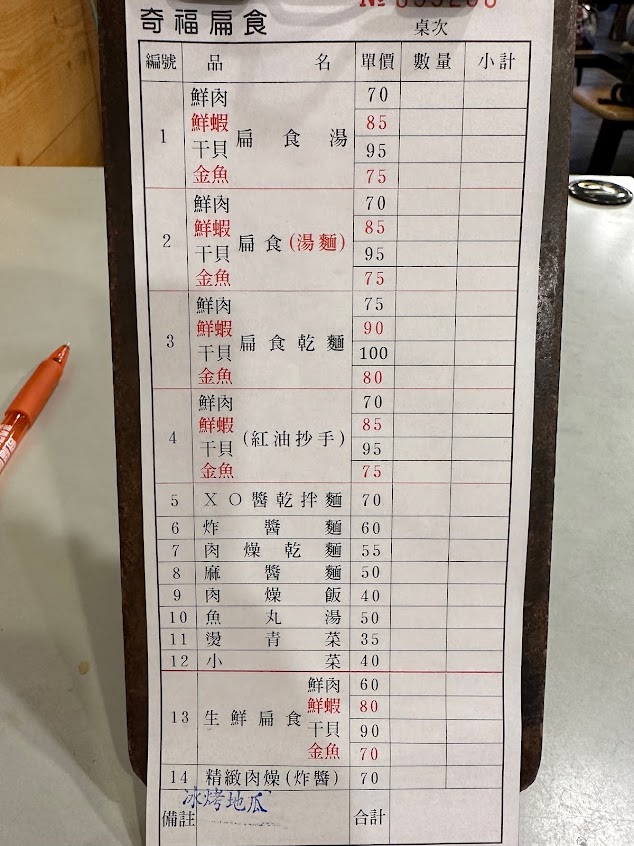 奇福扁食
桌次
編號 品名 單價 數量 小計
1 扁食湯
鮮肉 70
鮮蝦 85
干貝 95
金魚 75
2 扁食(湯麵)
鮮肉 70
鮮蝦 85
干貝 95
金魚 75
3 扁食乾麵
鮮肉 75
鮮蝦 90
干貝 100
金魚 80
4 (紅油抄手)
鮮肉 70
鮮蝦 85
干貝 95
金魚 75
5 XO醬乾拌麵 70
6 炸醬麵 60
7 肉燥乾麵 55
8 麻醬麵 50
9 肉燥飯 40
10 魚丸湯 50
11 燙青菜 35
12 小菜 40
13 生鮮扁食
鮮肉 60
鮮蝦 80
干貝 90
金魚 70
14 精緻肉燥(炸醬) 70
冰烤地瓜
備註 合計